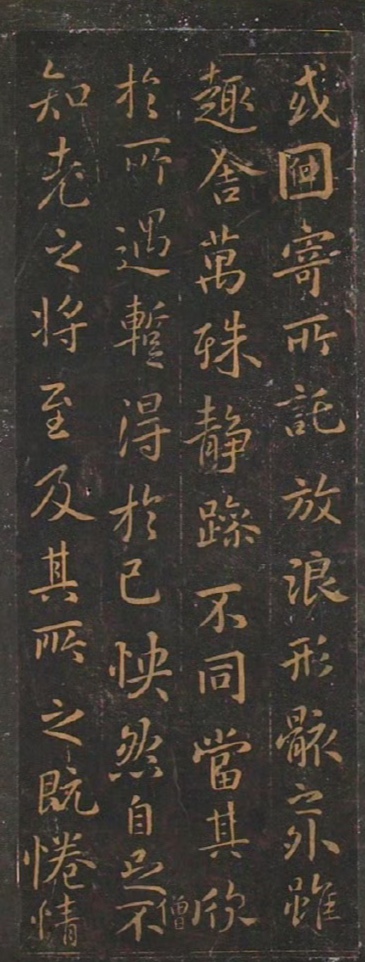 或因寄所託放浪形骸之外雖
趣舍萬殊静躁不同當其欣
於所遇暫得於己怏然自足不
僧
知老之將至及其所之既惓情